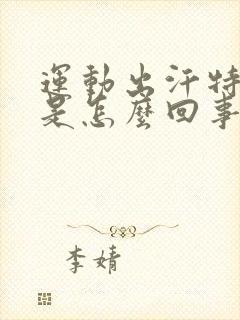 運動出汗特
是怎麼回事
李婧